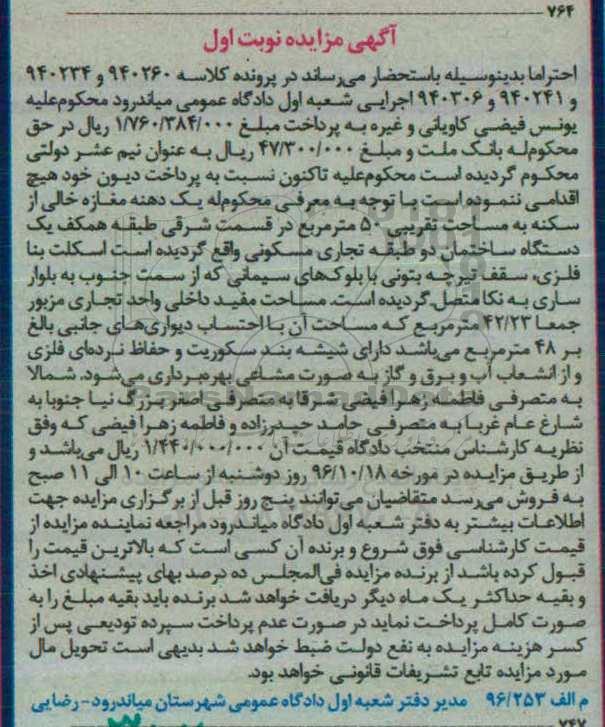 ۷۶۴
آگهی مزایده نوبت اول
احتراما بدینوسیله باستحضار می‌رساند در پرونده کلاسه ۹۴۰۲۶۰ و ۹۴۰۲۳۴
و ۹۴۰۲۴۱ و ۹۴۰۳۰۶ اجرایی شعبه اول دادگاه عمومی میاندرود محکوم‌علیه
یونس فیضی کاویانی و غیره به پرداخت مبلغ ۱/۷۶۰/۳۸۴/۰۰۰ ریال در حق
محکوم‌له بانک ملت و مبلغ ۴۷/۳۰۰/۰۰۰ ریال به عنوان نیم عشر دولتی
محکوم گردیده است محکوم‌علیه تاکنون نسبت به پرداخت دیون خود هیچ
اقدامی ننموده است با توجه به معرفی محکوم‌له یک دهنه مغازه خالی از
سکنه به مساحت تقریبی ۵۰ مترمربع در قسمت شرقی طبقه همکف یک
دستگاه ساختمان دو طبقه تجاری مسکونی واقع گردیده است اسکلت بنا
فلزی، سقف تیرچه بتونی با بلوک‌های سیمانی که از سمت جنوب به بلوار
ساری به نکا متصل گردیده است. مساحت مفید داخلی واحد تجاری مزبور
جمعا ۴۲/۲۳ مترمربع که مساحت آن با احتساب دیواری‌های جانبی بالغ
بر ۴۸ مترمربع می‌باشد دارای شیشه بند سکوریت و حفاظ نرده‌ای فلزی
و از انشعاب آب و برق و گاز به صورت مشاعی بهره‌برداری می‌شود. شمالا
به متصرفی فاطمه زهرا فیضی شرقا به متصرفی اصغر بزرگ نیا جنوبا به
شارع عام غربا به متصرفی حامد حیدرزاده و فاطمه زهرا فیضی که وفق
نظریه کارشناس منتخب دادگاه قیمت آن ۱/۴۴۰/۰۰۰/۰۰۰ ریال می‌باشد و
از طریق مزایده در مورخه ۹۶/۱۰/۱۸ روز دوشنبه از ساعت ۱۰ الی ۱۱ صبح
به فروش می‌رسد متقاضیان می‌توانند پنج روز قبل از برگزاری مزایده جهت
اطلاعات بیشتر به دفتر شعبه اول دادگاه میاندرود مراجعه نماینده مزایده از
قیمت کارشناسی فوق شروع و برنده آن کسی است که بالاترین قیمت را
قبول کرده باشد از برنده مزایده فی‌المجلس ده درصد بهای پیشنهادی اخذ
و بقیه حداکثر یک ماه دیگر دریافت خواهد شد برنده باید بقیه مبلغ را به
صورت کامل پرداخت نماید در صورت عدم پرداخت سپرده تودیعی پس از
کسر هزینه مزایده به نفع دولت ضبط خواهد شد بدیهی است تحویل مال
مورد مزایده تابع تشریفات قانونی خواهد بود.
م الف ۹۶/۲۵۳ مدیر دفتر شعبه اول دادگاه عمومی شهرستان میاندرود- رضایی
۷۴۷